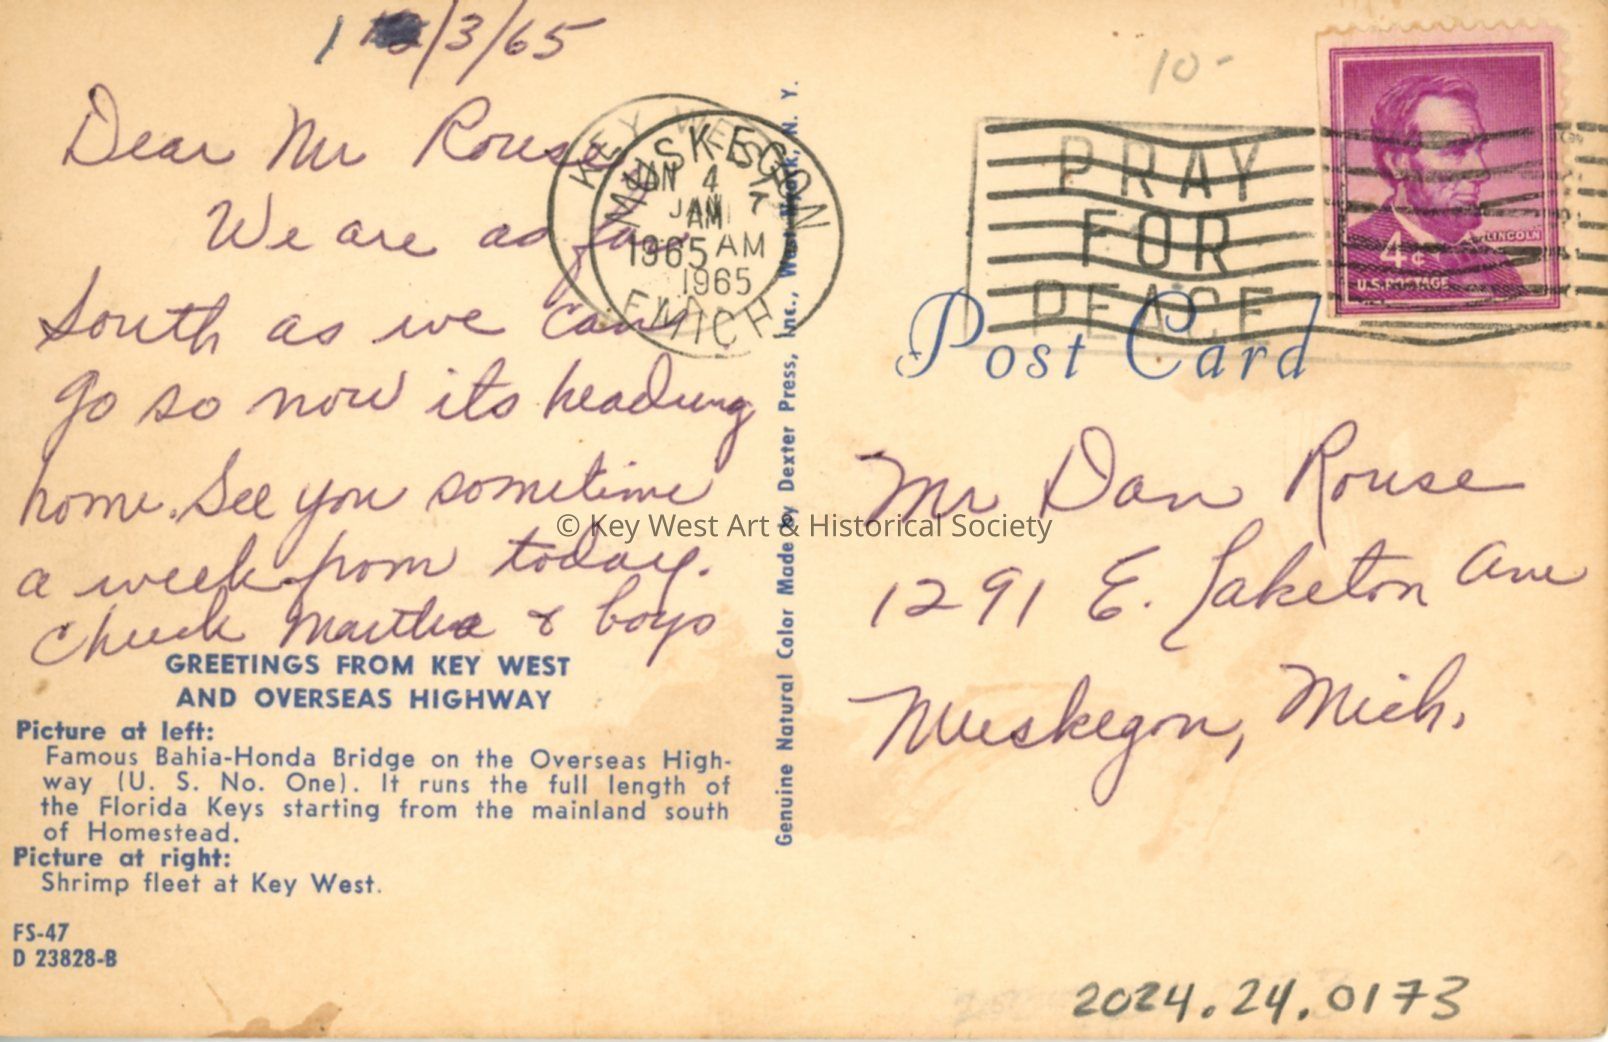 1/3/65
Dear Mr Rouse
We are as far
South as we can
go so now its heading
home. See you sometime
a week from today.
Chuck Martha & boys
GREETINGS FROM KEY WEST
AND OVERSEAS HIGHWAY
Picture at left:
Famous Bahia-Honda Bridge on the Overseas High-
way (U. S. No. One). It runs the full length of
the Florida Keys starting from the mainland south
of Homestead.
Picture at right:
Shrimp fleet at Key West.
FS-47
D 23828-B
KEY WEST
JAN 4
AM
1965
FLA
MUSKEGON
JAN 7
AM
1965
MICH
Genuine Natural Color Made by Dexter Press, Inc., West Nyack, N. Y.
10-
PRAY
FOR
PEACE
LINCOLN
4¢
U.S. POSTAGE
Post Card
Mr Dan Rouse
1291 E. Laketon Ave
Muskegon, Mich.
© Key West Art & Historical Society
2024.24.0173